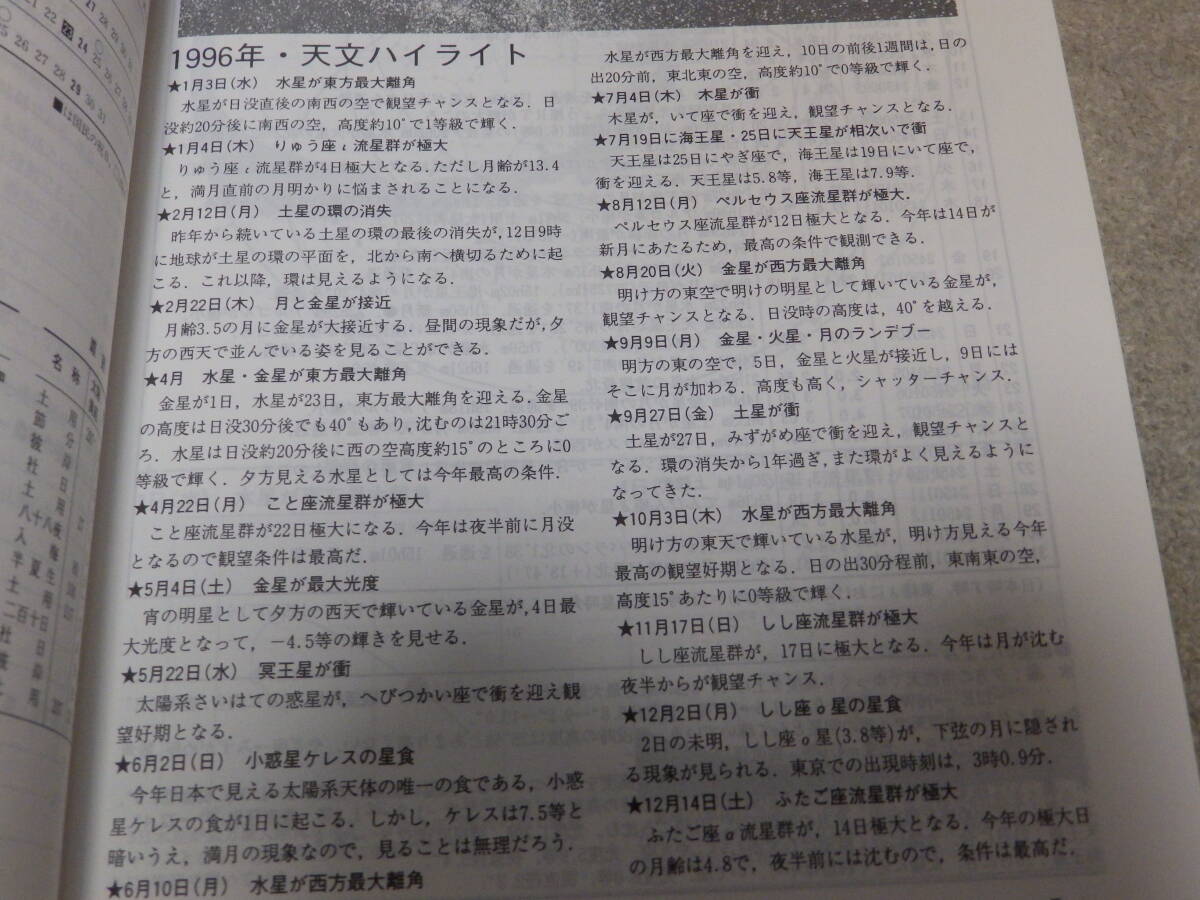 1996年・天文ハイライト
★1月3日(水) 水星が東方最大離角
水星が日没直後の南西の空で観望チャンスとなる．日
没約20分後に南西の空，高度約10°で1等級で輝く．
★1月4日(木) りゅう座ι流星群が極大
りゅう座ι流星群が4日極大となる．ただし月齢が13.4
と，満月直前の月明かりに悩まされることになる．
★2月12日(月) 土星の環の消失
昨年から続いている土星の環の最後の消失が，12日9時
に地球が土星の環の平面を，北から南へ横切るために起
こる．これ以降，環は見えるようになる．
★2月22日(木) 月と金星が接近
月齢3.5の月に金星が大接近する．昼間の現象だが，夕
方の西天で並んでいる姿を見ることができる．
★4月 水星・金星が東方最大離角
金星が1日，水星が23日，東方最大離角を迎える．金星
の高度は日没30分後でも40°もあり，沈むのは21時30分ご
ろ．水星は日没約20分後に西の空高度約15°のところに0
等級で輝く．夕方見える水星としては今年最高の条件．
★4月22日(月) こと座流星群が極大
こと座流星群が22日極大になる．今年は夜半前に月没
となるので観望条件は最高だ．
★5月4日(土) 金星が最大光度
宵の明星として夕方の西天で輝いている金星が，4日最
大光度となって，−4.5等の輝きを見せる．
★5月22日(水) 冥王星が衝
太陽系さいはての惑星が，へびつかい座で衝を迎え観
望好期となる．
★6月2日(日) 小惑星ケレスの星食
今年日本で見える太陽系天体の唯一の食である，小惑
星ケレスの食が1日に起こる．しかし，ケレスは7.5等と
暗いうえ，満月の現象なので，見ることは無理だろう．
★6月10日(月) 水星が西方最大離角
水星が西方最大離角を迎え，10日の前後1週間は，日の
出20分前，東北東の空，高度約10°で0等級で輝く．
★7月4日(木) 木星が衝
木星が，いて座で衝を迎え，観望チャンスとなる．
★7月19日に海王星・25日に天王星が相次いで衝
天王星は25日にやぎ座で，海王星は19日にいて座で，
衝を迎える．天王星は5.8等，海王星は7.9等．
★8月12日(月) ペルセウス座流星群が極大．
ペルセウス座流星群が12日極大となる．今年は14日が
新月にあたるため，最高の条件で観測できる．
★8月20日(火) 金星が西方最大離角
明け方の東空で明けの明星として輝いている金星が，
観望チャンスとなる．日没時の高度は，40°を越える．
★9月9日(月) 金星・火星・月のランデブー
明方の東の空で，5日，金星と火星が接近し，9日には
そこに月が加わる．高度も高く，シャッターチャンス．
★9月27日(金) 土星が衝
土星が27日，みずがめ座で衝を迎え，観望チャンスと
なる．環の消失から1年過ぎ，また環がよく見えるように
なってきた．
★10月3日(木) 水星が西方最大離角
明け方の東天で輝いている水星が，明け方見える今年
最高の観望好期となる．日の出30分程前，東南東の空，
高度15°あたりに0等級で輝く．
★11月17日(日) しし座流星群が極大
しし座流星群が，17日に極大となる．今年は月が沈む
夜半からが観望チャンス．
★12月2日(月) しし座ο星の星食
2日の未明，しし座ο星(3.8等)が，下弦の月に隠され
る現象が見られる．東京での出現時刻は，3時0.9分．
★12月14日(土) ふたご座流星群が極大
ふたご座α流星群が，14日極大となる．今年の極大日
の月齢は4.8で，夜半前には沈むので，条件は最高だ．